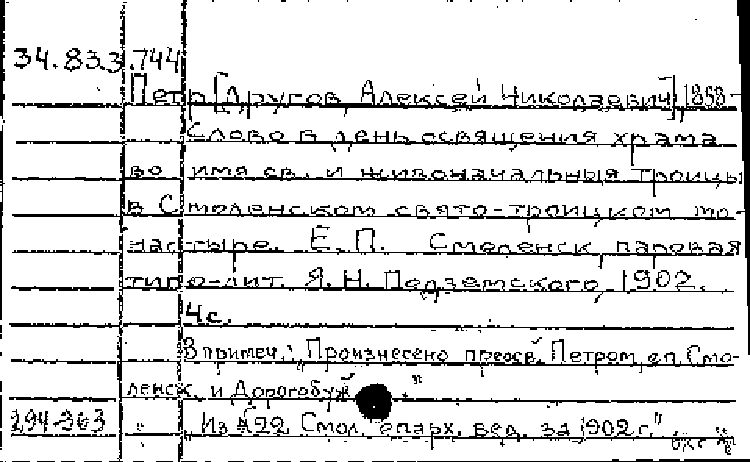 34.83.3.744
Петр [Другов, Алексей Николаевич], 1858-
Слово в день освящения храма
во имя св. и живоначальныя троицы
в Смоленском свято-троицком мо-
настыре. Е.П. Смоленск, паровая
типо-лит. Я.Н. Подземского, 1902.
4с.
В примеч.: „Произнесено преосв. Петром, еп. Смо-
ленск. и Дорогобуж.“
294-363 „ Из №22. Смол. епарх. вед. за 1902 г.“